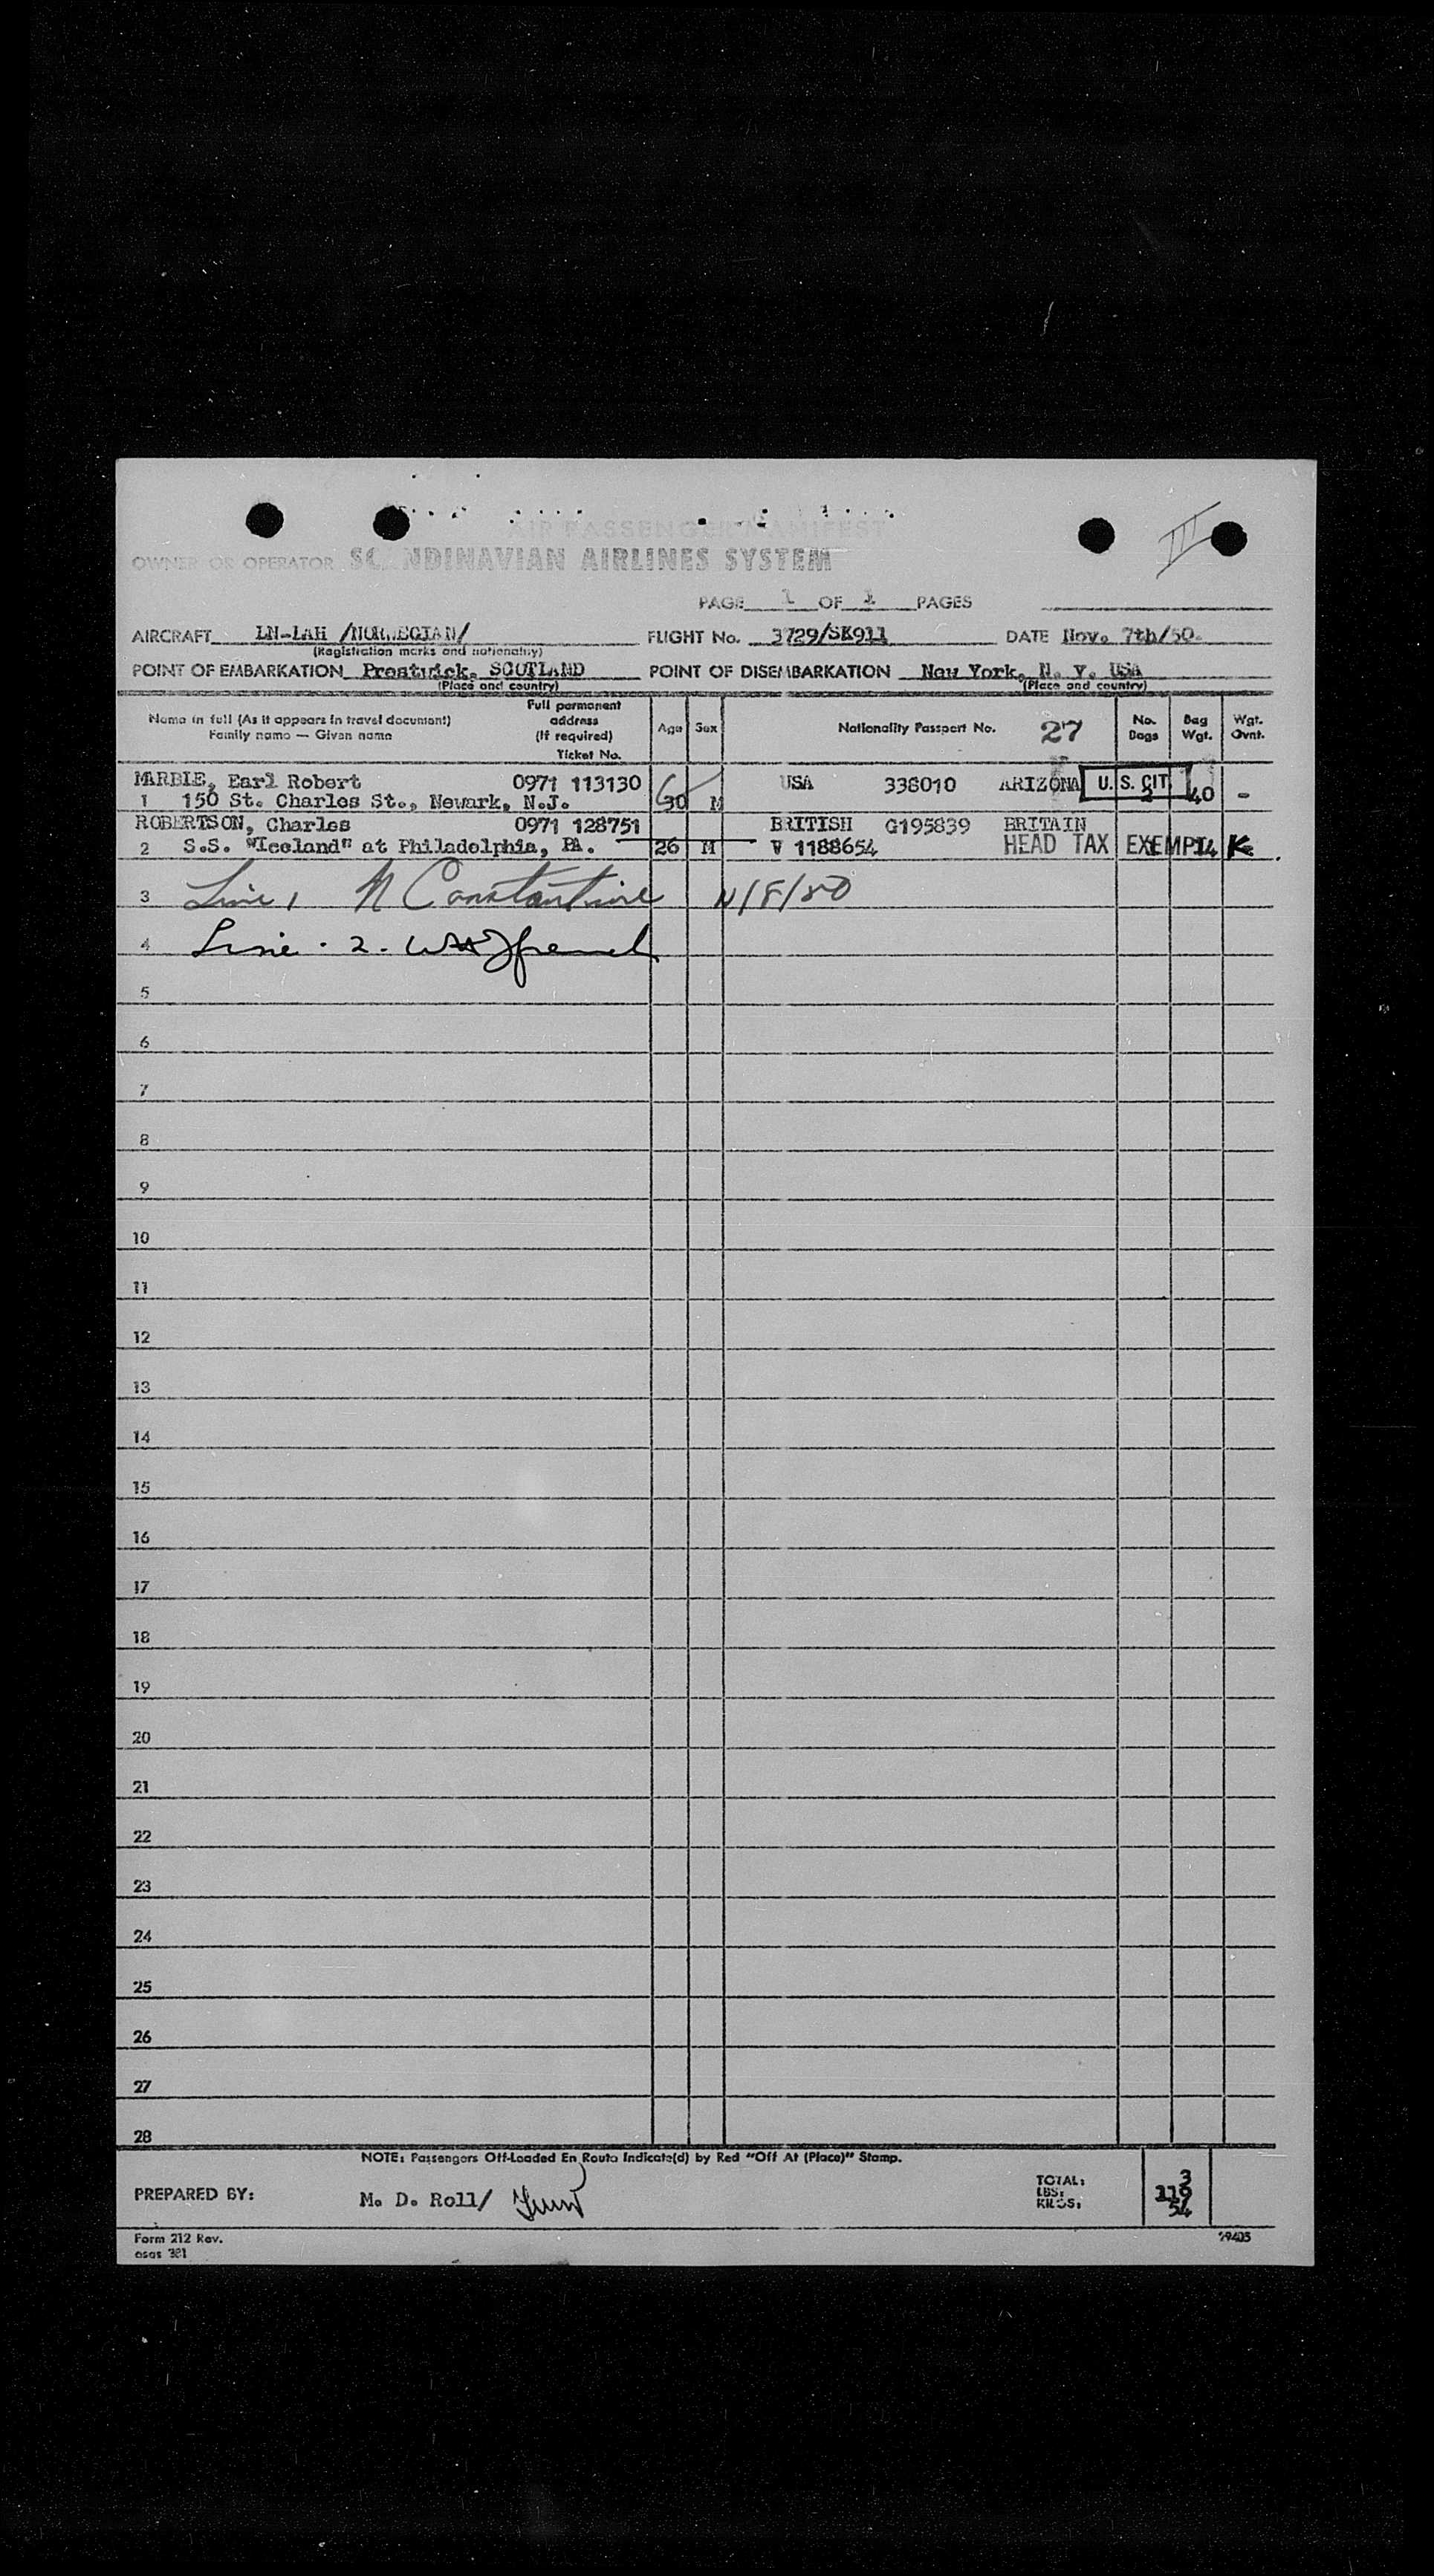 III
AIR PASSENGER MANIFEST
OWNER OR OPERATOR SCANDINAVIAN AIRLINES SYSTEM
PAGE 1 OF 1 PAGES
AIRCRAFT LN-LAH /NORWEGIAN/ FLIGHT No. 3729/SK911 DATE Nov. 7th/50.
(Registration marks and nationality)
POINT OF EMBARKATION Prestwick, SCOTLAND POINT OF DISEMBARKATION New York, N. Y. USA
(Place and country) (Place and country)
Name in full (As it appears in travel document) Family name — Given name Full permanent address (If required) Ticket No. Age Sex Nationality Passport No. 27 No. Bags Bag Wgt. Wgt. Ovnt.
MARBLE, Earl Robert 0971 113130 USA 338010 ARIZONA U. S. CIT.
1 150 St. Charles St., Newark, N.J. 30 M 2 40 -
ROBERTSON, Charles 0971 128751 BRITISH G195839 BRITAIN
2 S.S. "Iceland" at Philadelphia, PA. 26 M V 1188654 HEAD TAX EXEMPT 14 K
3 Line 1 N Constantine 11/8/50
4 Line . 2.
5
6
7
8
9
10
11
12
13
14
15
16
17
18
19
20
21
22
23
24
25
26
27
28
NOTE: Passengers Off-Loaded En Route Indicate(d) by Red "Off At (Place)" Stamp.
PREPARED BY: M. D. Roll/ TOTAL: 3
LBS: 119
KILOS: 54
Form 212 Rev. 29405
osas 381